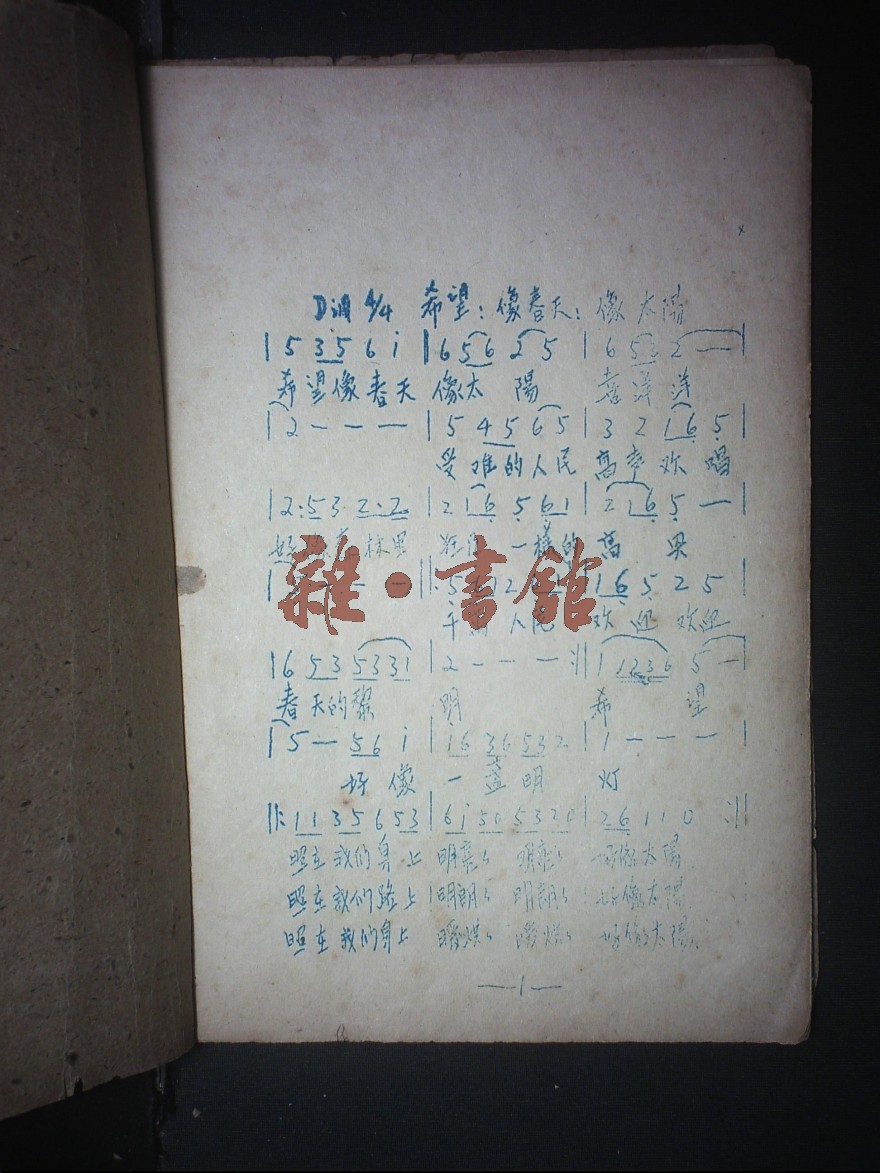 D调 4/4 希望:像春天:像太陽
| 5 35 6 i | 6 56 2 5 | 6 53 2 — — |
希望像春天 像太 陽 喜洋 洋
| 2 — — — | 5 45 6 5 | 3 2 16 5 |
受难的人民 高声 欢 唱
| 2· 53 2·2 | 2 16 5 61 | 2 16 5 — |
林里 一樣的 高 兴
雜·書館
| 16 5 2 5 |
人民 欢 迎 欢迎
| 6 53 5331 | 2 — — — :|| 1 1236 5 — |
春天的黎 明 希 望
| 5 — 56 i | i6 36 532 | 1 — — — |
好 像 一 盏 明 灯
||: 11 35 6 53 | 6i 50 53 20 | 26 1 1 0 :||
照在我们身上 明亮亮 明亮亮 好像太陽
照在我们路上 明朗朗 明朗朗 好像太陽
照在我们身上 好像太陽
—1—